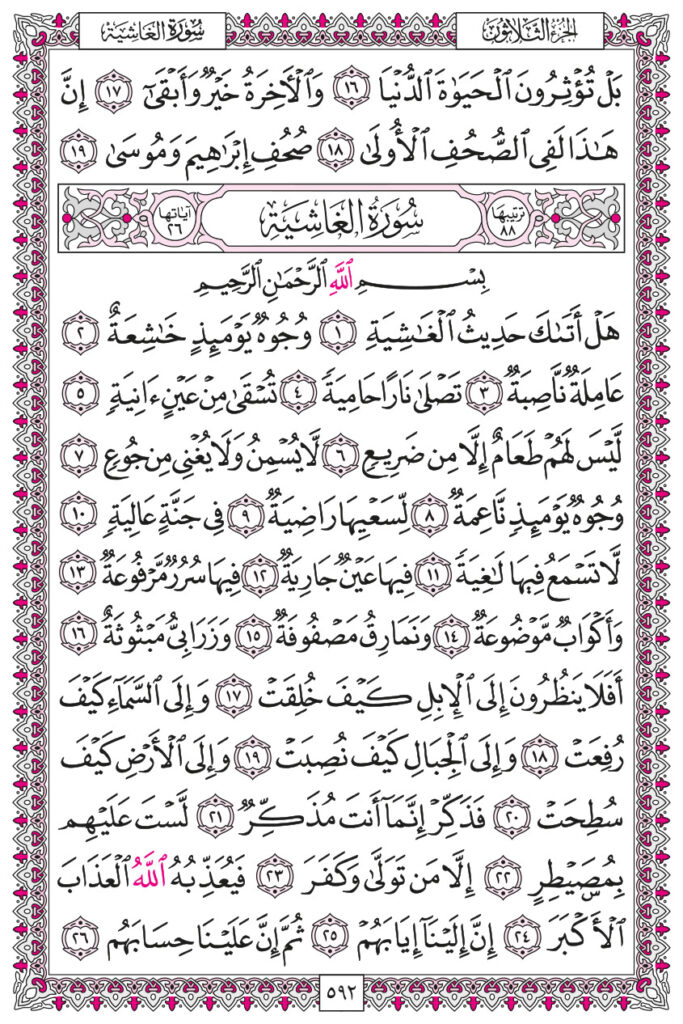 الجزء الثلاثون
سورة الغاشية
بَلْ تُؤْثِرُونَ ٱلْحَيَوٰةَ ٱلدُّنْيَا ١٦ وَٱلْأٓخِرَةُ خَيْرٌ وَأَبْقَىٰٓ ١٧ إِنَّ
هَٰذَا لَفِى ٱلصُّحُفِ ٱلْأُولَىٰ ١٨ صُحُفِ إِبْرَٰهِيمَ وَمُوسَىٰ ١٩
ترتيبها ٨٨ سُورَةُ الغَاشِيَةِ آياتها ٢٦
بِسْمِ ٱللَّهِ ٱلرَّحْمَٰنِ ٱلرَّحِيمِ
هَلْ أَتَىٰكَ حَدِيثُ ٱلْغَٰشِيَةِ ١ وُجُوهٌ يَوْمَئِذٍ خَٰشِعَةٌ ٢
عَامِلَةٌ نَّاصِبَةٌ ٣ تَصْلَىٰ نَارًا حَامِيَةً ٤ تُسْقَىٰ مِنْ عَيْنٍ ءَانِيَةٍ ٥
لَّيْسَ لَهُمْ طَعَامٌ إِلَّا مِن ضَرِيعٍ ٦ لَّا يُسْمِنُ وَلَا يُغْنِى مِن جُوعٍ ٧
وُجُوهٌ يَوْمَئِذٍ نَّاعِمَةٌ ٨ لِّسَعْيِهَا رَاضِيَةٌ ٩ فِى جَنَّةٍ عَالِيَةٍ ١٠
لَّا تَسْمَعُ فِيهَا لَٰغِيَةً ١١ فِيهَا عَيْنٌ جَارِيَةٌ ١٢ فِيهَا سُرُرٌ مَّرْفُوعَةٌ ١٣
وَأَكْوَابٌ مَّوْضُوعَةٌ ١٤ وَنَمَارِقُ مَصْفُوفَةٌ ١٥ وَزَرَابِىُّ مَبْثُوثَةٌ ١٦
أَفَلَا يَنظُرُونَ إِلَى ٱلْإِبِلِ كَيْفَ خُلِقَتْ ١٧ وَإِلَى ٱلسَّمَآءِ كَيْفَ
رُفِعَتْ ١٨ وَإِلَى ٱلْجِبَالِ كَيْفَ نُصِبَتْ ١٩ وَإِلَى ٱلْأَرْضِ كَيْفَ
سُطِحَتْ ٢٠ فَذَكِّرْ إِنَّمَآ أَنتَ مُذَكِّرٌ ٢١ لَّسْتَ عَلَيْهِم
بِمُصَۜيْطِرٍ ٢٢ إِلَّا مَن تَوَلَّىٰ وَكَفَرَ ٢٣ فَيُعَذِّبُهُ ٱللَّهُ ٱلْعَذَابَ
ٱلْأَكْبَرَ ٢٤ إِنَّ إِلَيْنَآ إِيَابَهُمْ ٢٥ ثُمَّ إِنَّ عَلَيْنَا حِسَابَهُم ٢٦
٥٩٢